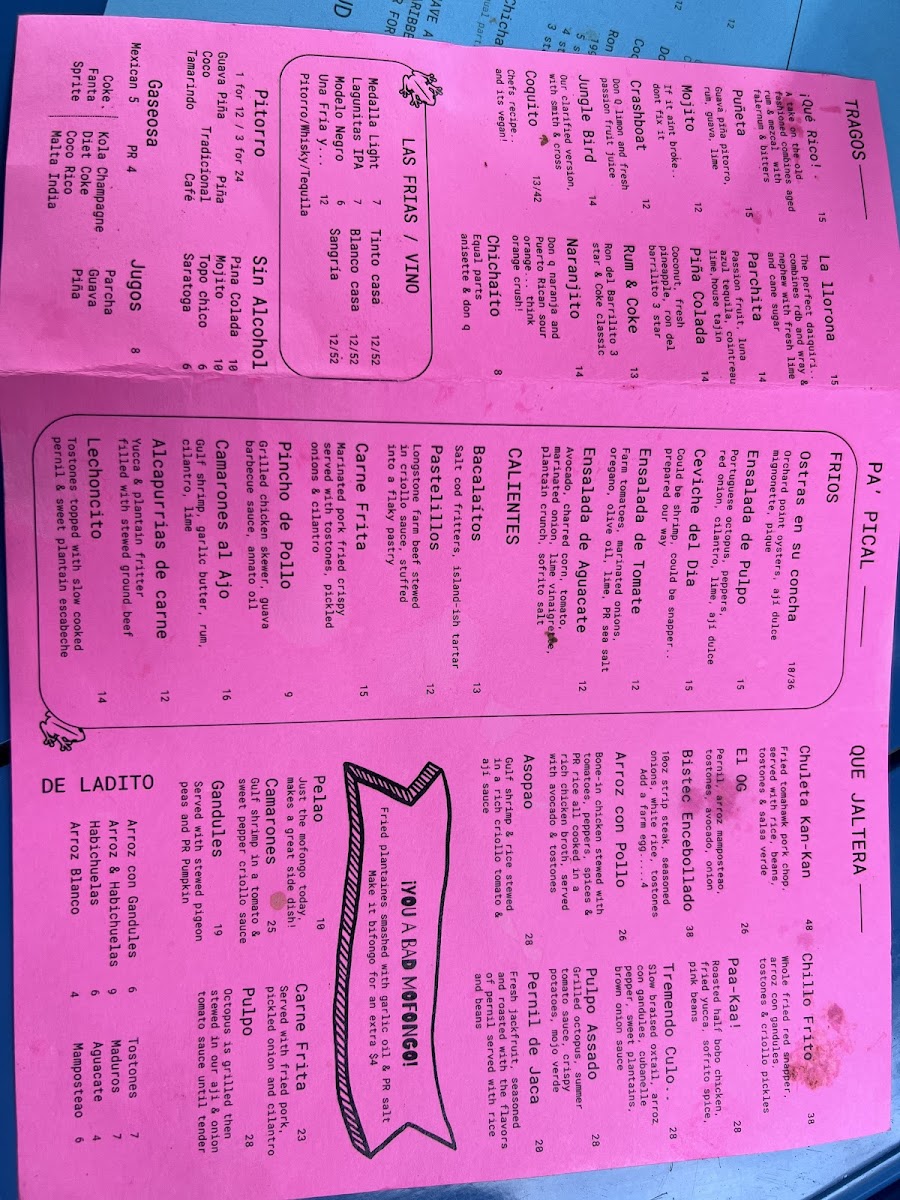 TRAGOS
¡Qué Rico! - 15
A take on the old
fashioned combines aged
rum & mezcal with
falernum & bitters
Puñeta 15
Guava piña pitorro,
rum, guava, lime
Mojito 12
If it aint broke..
dont fix it
Crashboat 12
Don Q limon and fresh
passion fruit juice
Jungle Bird 14
Our clarified version,
with smith & cross
Coquito 13/42
Chefs recipe..
and its vegan!
La llorona 15
The perfect daiquiri..
combines rdb and wray &
nephew with fresh lime
and cane sugar
Parchita 14
Passion fruit, luna
azul tequila, cointreau
lime, house tajin
Piña Colada 14
Coconut, fresh
pineapple, ron del
barrilito 3 star
Rum & Coke 13
Ron del Barrilito 3
star & Coke classic
Naranjito 14
Don q naranja and
Puerto Rican sour
orange... think
orange crush!
Chichaito 8
Equal parts
anisette & don q
LAS FRIAS / VINO
Medalla Light 7
Lagunitas IPA 7
Modelo Negro 6
Una Fria y... 12
Pitorro/Whisky/Tequila
Tinto casa 12/52
Blanco casa 12/52
Sangria 12/52
Pitorro
1 for 12 / 3 for 24
Guava Piña Piña
Coco Tradicional
Tamarindo Café
Sin Alcohol
Pina Colada 10
Mojito 10
Topo chico 6
Saratoga 6
Gaseosa
Mexican 5 PR 4
Coke Kola Champagne
Fanta Diet Coke
Sprite Coco Rico
Malta India
Jugos 8
Parcha
Guava
Piña
PA' PICAL
FRIOS
Ostras en su concha 18/36
Orchard point oysters, aji dulce
mignonette, pique
Ensalada de Pulpo 15
Portuguese octopus, peppers,
red onion, cilantro, lime, aji dulce
Ceviche del Dia 15
Could be shrimp, could be snapper..
prepared our way
Ensalada de Tomate 12
Farm tomatoes, marinated onions,
oregano, olive oil, lime, PR sea salt
Ensalada de Aguacate 12
Avocado, charred corn, tomato,
marinated onion, lime vinaigrette,
plantain crunch, sofrito salt
CALIENTES
Bacalaitos 13
Salt cod fritters, island-ish tartar
Pastelillos 12
Longstone farm beef stewed
in criollo sauce, stuffed
into a flaky pastry
Carne Frita 15
Marinated pork fried crispy
served with tostones, pickled
onions & cilantro
Pincho de Pollo 9
Grilled chicken skewer, guava
barbecue sauce, annato oil
Camarones al Ajo 16
Gulf shrimp, garlic butter, rum,
cilantro, lime
Alcapurrias de carne 12
Yucca & plantain fritter
filled with stewed ground beef
Lechoncito 14
Tostones topped with slow cooked
pernil & sweet plantain escabeche
QUE JALTERA
Chuleta Kan-Kan 48
Fried tomahawk pork chop,
served with rice, beans,
tostones & salsa verde
El OG 26
Pernil, arroz mamposteao,
tostones, avocado, onion
Bistec Encebollado 38
10oz strip steak, seasoned
onions, white rice, tostones
Add a farm egg....4
Arroz con Pollo 26
Bone-in chicken stewed with
tomatoes, peppers, spices &
PR rice all cooked in a
rich chicken broth, served
with avocado & tostones
Asopao 28
Gulf shrimp & rice stewed
in a rich criollo tomato &
aji sauce
Chillo Frito 38
Whole fried red snapper,
arroz con gandules,
tostones & criollo pickles
Paa-Kaa! 28
Roasted half bobo chicken,
fried yucca, sofrito spice,
pink beans
Tremendo Culo.. 28
Slow braised oxtail, arroz
con gandules, cubanelle
pepper, sweet plantains,
brown onion sauce
Pulpo Assado 28
Grilled octopus, summer
tomato sauce, crispy
potatoes, mojo verde
Pernil de Jaca 20
Fresh jackfruit, seasoned
and roasted with the flavors
of pernil served with rice
and beans
¡YOU A BAD MOFONGO!
Fried plantaines smashed with garlic oil & PR salt
Make it bifongo for an extra $4
Pelao 10
Just the mofongo today,
makes a great side dish!
Camarones 25
Gulf shrimp in a tomato &
sweet pepper criollo sauce
Gandules 19
Served with stewed pigeon
peas and PR Pumpkin
Carne Frita 23
Served with fried pork,
pickled onion and cilantro
Pulpo 28
Octopus is grilled then
stewed in our aji & onion
tomato sauce until tender
DE LADITO
Arroz con Gandules 6
Arroz & Habichuelas 9
Habichuelas 6
Arroz Blanco 4
Tostones 7
Maduros 7
Aguacate 4
Mamposteao 6